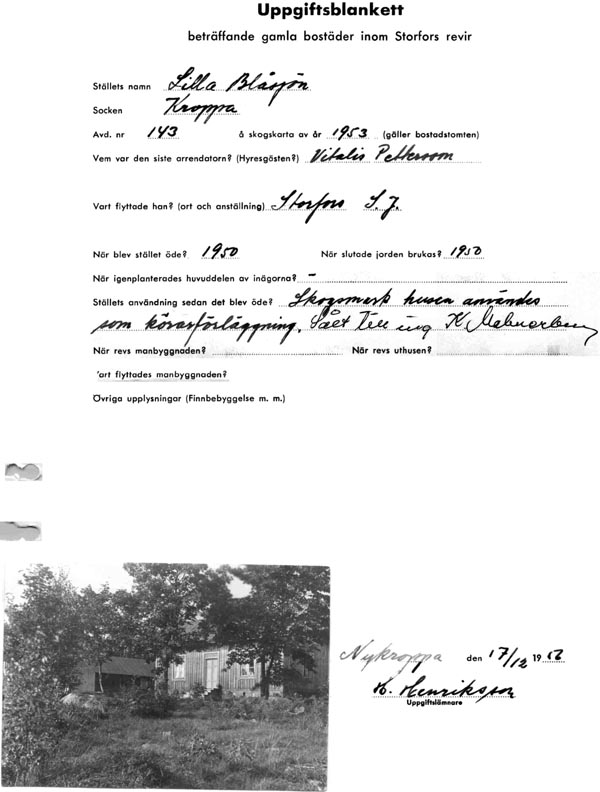 Uppgiftsblankett
beträffande gamla bostäder inom Storfors revir
Ställets namn Lilla Blåsjön
Socken Kroppa
Avd. nr 143 å skogskarta av år 1953 (gäller bostadstomten)
Vem var den siste arrendatorn? (Hyresgästen?) Vitalis Pettersson
Vart flyttade han? (ort och anställning) Storfors S.J.
När blev stället öde? 1950 När slutade jorden brukas? 1950
När igenplanterades huvuddelen av inägorna? –
Ställets användning sedan det blev öde? Skogsmark husen användes
som körarförläggning. Sålt till ing K
När revs manbyggnaden? När revs uthusen?
'art flyttades manbyggnaden?
Övriga upplysningar (Finnbebyggelse m. m.)
Nykroppa den 17/12 19
H. Henriksson
Uppgiftslämnare